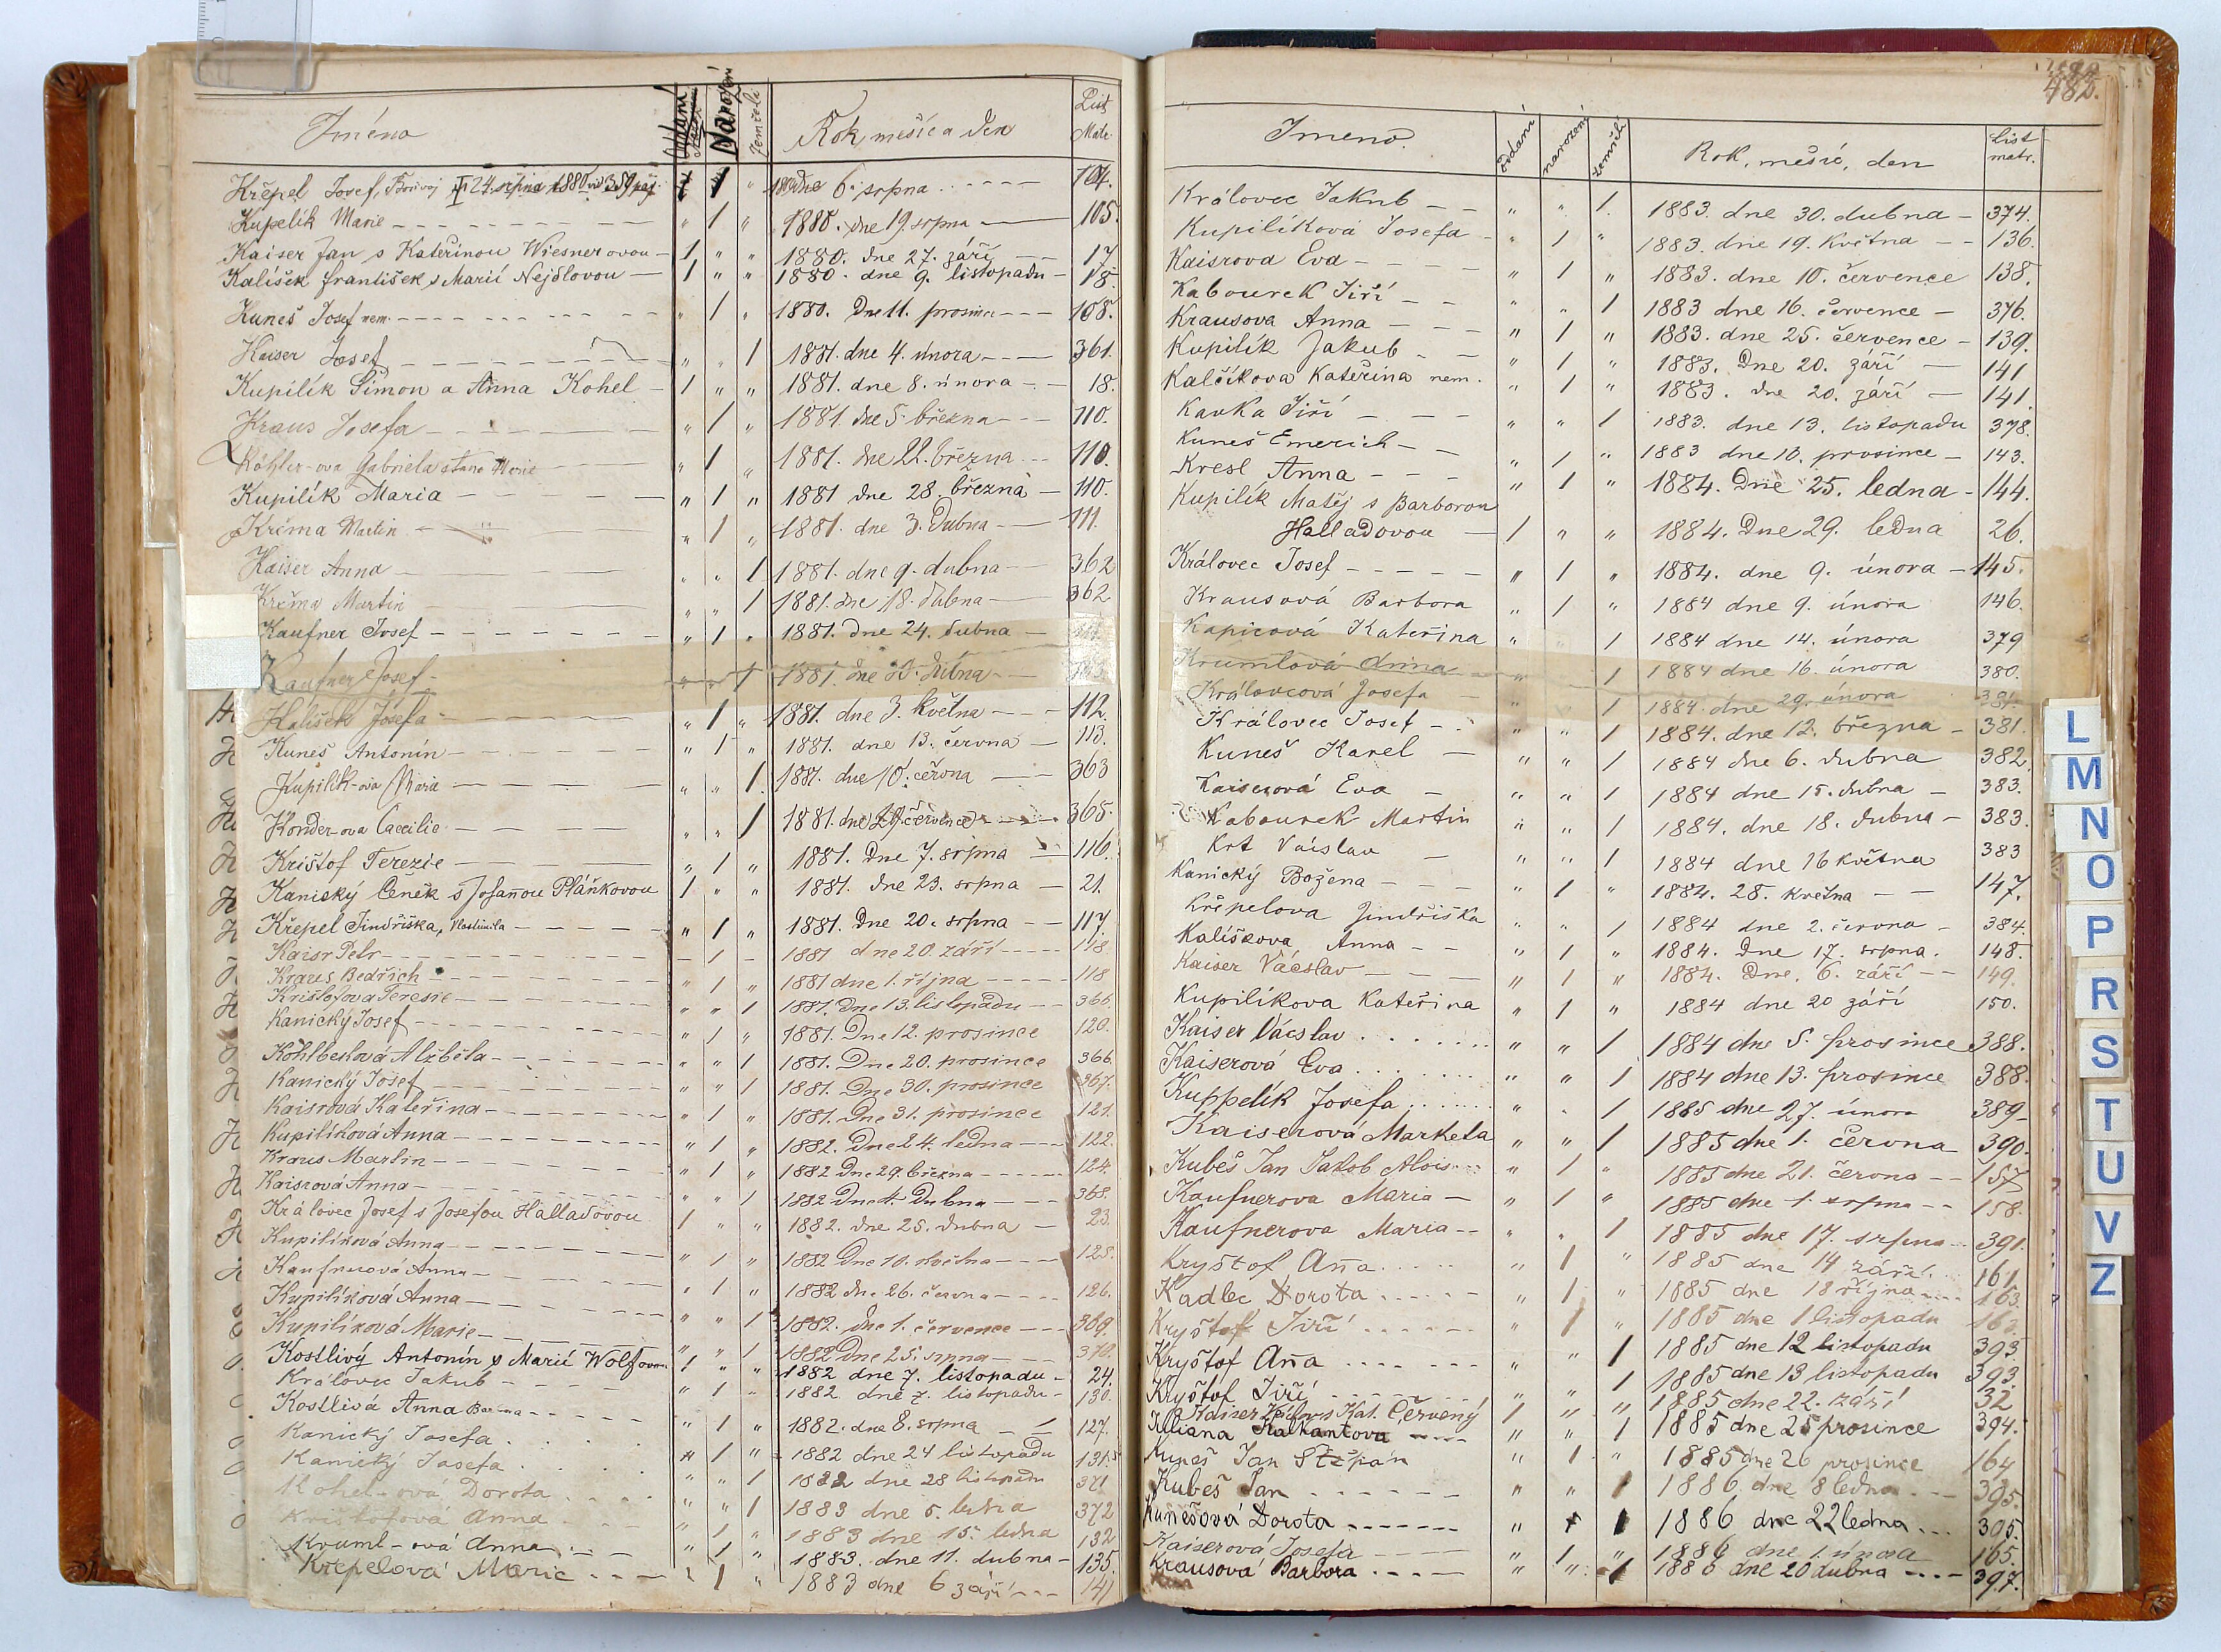 Jména Oddaní Narození Zemřelí Rok, měsíc a den List Matr.
Křepel Josef, Bořivoj 24. srpna 1880 " 1880 dne 6. srpna 104.
Kupelík Marie " 1 " 1880. dne 19. srpna 105.
Kaiser Jan s Kateřinou Wiesnerovou 1 " " 1880. dne 27. září 17
Kalíšek František s Marií Nejdlovou 1 " " 1880. dne 9. listopadu 18.
Kuneš Josef nem. " 1 " 1880. Dne 11. prosince 108.
Kaiser Josef " " 1 1881. dne 4. února 361.
Kupilík Šimon a Anna Kohel 1 " " 1881. dne 8. února 18.
Kraus Josefa " 1 " 1881. dne 5. března 110.
Köhler-ova Gabriela Marie " 1 " 1881. dne 22. března 110.
Kupilík Maria " 1 " 1881 dne 28. března 110.
Krčma Martin " 1 " 1881. dne 3. Dubna 111.
Kaiser Anna " " 1 1881. dne 9. dubna 362
Krčma Martin " " 1 1881. dne 18. dubna 362
Kaufner Josef " 1 " 1881. Dne 24. dubna
Kaufner Josef " " 1 1881. dne dubna
Kalíšek Josefa " 1 " 1881. dne 3. května 112.
Kuneš Antonín " 1 " 1881. dne 13. června 113.
Kupilík-ova Maria " " 1 1881. dne 10. června 363
Konder-ova Caecilie " " 1 1881. dne 29. července 365.
Krištof Terezie " 1 " 1881. Dne 7. srpna 116.
Kanický Čeněk s Josefanou Pláňkovou 1 " " 1881. dne 23. srpna 21.
Křepel Jindřiška, Vlastimila " 1 " 1881. Dne 20. srpna 117.
Kaisr Petr - 1 - 1881 dne 20. září 118.
Kraus Bedřich " 1 " 1881 dne 1. října 118
Krištofova Teresie " " 1 1881. Dne 13. listopadu 366
Kanický Josef " 1 " 1881. Dne 12. prosince 120.
Kohlbeková Alžběta " " 1 1881. Dne 20. prosince 366.
Kanický Josef " " 1 1881. Dne 30. prosince 367.
Kaisrová Kateřina " 1 " 1881. Dne 31. prosince 121.
Kupilíková Anna " 1 " 1882. Dne 24. ledna 122.
Kraus Martin " 1 " 1882 Dne 29. března 124.
Kaisrová Anna " " 1 1882 Dne 4. Dubna 368.
Královec Josef s Josefou Halladovou 1 " " 1882. dne 25. dubna 23.
Kupilíková Anna " 1 " 1882 Dne 10. května 125.
Kaufnerová Anna " 1 " 1882 dne 26. června 126.
Kupilíková Anna " " 1 1882. dne 1. července 369.
Kupilíková Marie " " 1 1882 Dne 25. srpna 370.
Kostlivý Antonín s Marií Wolfovou 1 " " 1882 dne 7. listopadu 24.
Královec Jakub " 1 " 1882 dne 7. listopadu 130.
Kostlivá Anna " 1 " 1882. dne 8. srpna 127.
Kanický Josefa " 1 " 1882 dne 24 listopadu 131.
Kanický Josefa " " 1 1882 dne 28 listopadu 371
Kohel-ová Dorota " " 1 1883 dne 5. ledna 372
Krištofová Anna " 1 " 1883 dne 15. ledna 132
Kruml-ová Anna " 1 " 1883. dne 11. dubna 135.
Křepelová Marie " 1 " 1883 dne 6 září 141
482.
Jmeno. oddaní narození zemřelí Rok, měsíc, den List matr.
Královec Jakub " " 1. 1883. dne 30. dubna 374.
Kupilíková Josefa " 1 " 1883. dne 19. Května 136.
Kaisrova Eva " 1 " 1883. dne 10. července 138.
Kabourek Jiří " " 1 1883 dne 16. července 376.
Krausova Anna " 1 " 1883. dne 25. července 139.
Kupilík Jakub " 1 " 1883. Dne 20. září 141
Kalčíkova Kateřina nem. " 1 " 1883. dne 20. září 141.
Kavka Jiří " " 1 1883. dne 13. listopadu 378.
Kuneš Emerich " 1 " 1883 dne 10. prosince 143.
Kresl Anna " 1 " 1884. Dne 25. ledna 144.
Kupilík Matěj s Barborou
Halladovou 1 " " 1884. Dne 29. ledna 26.
Královec Josef " 1 " 1884. dne 9. února 145.
Krausová Barbora " 1 " 1884 dne 9. února 146.
Kapicová Kateřina " " 1 1884 dne 14. února 379
Krumlová Anna " " 1 1884 dne 16. února 380.
Královcová Josefa " " 1 1884. dne 29. února 381.
Královec Josef " " 1 1884. dne 12. března 381.
Kuneš Karel " " 1 1884 dne 6. dubna 382.
Kaiserová Eva " " 1 1884 dne 15. dubna 383.
Kabourek Martin " " 1 1884. dne 18. dubna 383.
Krt Václav " " 1 1884 dne 16 května 383
Kanický Božena " 1 " 1884. 28. května 147.
Křepelova Jindřiška " " 1 1884 dne 2. června 384.
Kalíškova Anna " 1 " 1884. Dne 17. srpna. 148.
Kaiser Václav " 1 " 1884. Dne. 6. září 149.
Kupilíkova Kateřina " 1 " 1884 dne 20 září 150.
Kaiser Václav " " 1 1884 dne 5. prosince 388.
Kaiserová Eva " " 1 1884 dne 13. prosince 388.
Kuppelík Josefa " " 1 1885 dne 27. února 389
Kaiserová Marketa " " 1 1885 dne 1. června 390.
Kubeš Jan Jakob Alois " 1 " 1885 dne 21. června 157
Kaufnerova Maria " 1 " 1885 dne 1. srpna 158.
Kaufnerova Maria " " 1 1885 dne 17. srpna 391.
Kryštof Anna " 1 " 1885 dne 14 září 161.
Kadlec Dorota " 1 " 1885 dne 18 října 163.
Kryštof Jiří " 1 " 1885 dne 1 listopadu 162.
Kryštof Anna " " 1 1885 dne 12 listopadu 393
Kryštof Jiří " " 1 1885 dne 13 listopadu 393.
Kaiser s Kat. Červený 1 " " 1885 dne 22. září 32
Illiana Kalkantova " " 1 1885 dne 25 prosince 394.
Kuneš Jan Štěpán " 1 " 1885 dne 26 prosince 164
Kubeš Jan " " 1 1886 dne 8 ledna 395.
Kunešová Dorota " 1 1886 dne 22 ledna 305.
Kaiserová Josefa " 1 " 1886 dne 1. února 165.
Krausová Barbora " " 1 1886 dne 20 dubna 397.
L
M
N
O
P
R
S
T
U
V
Z